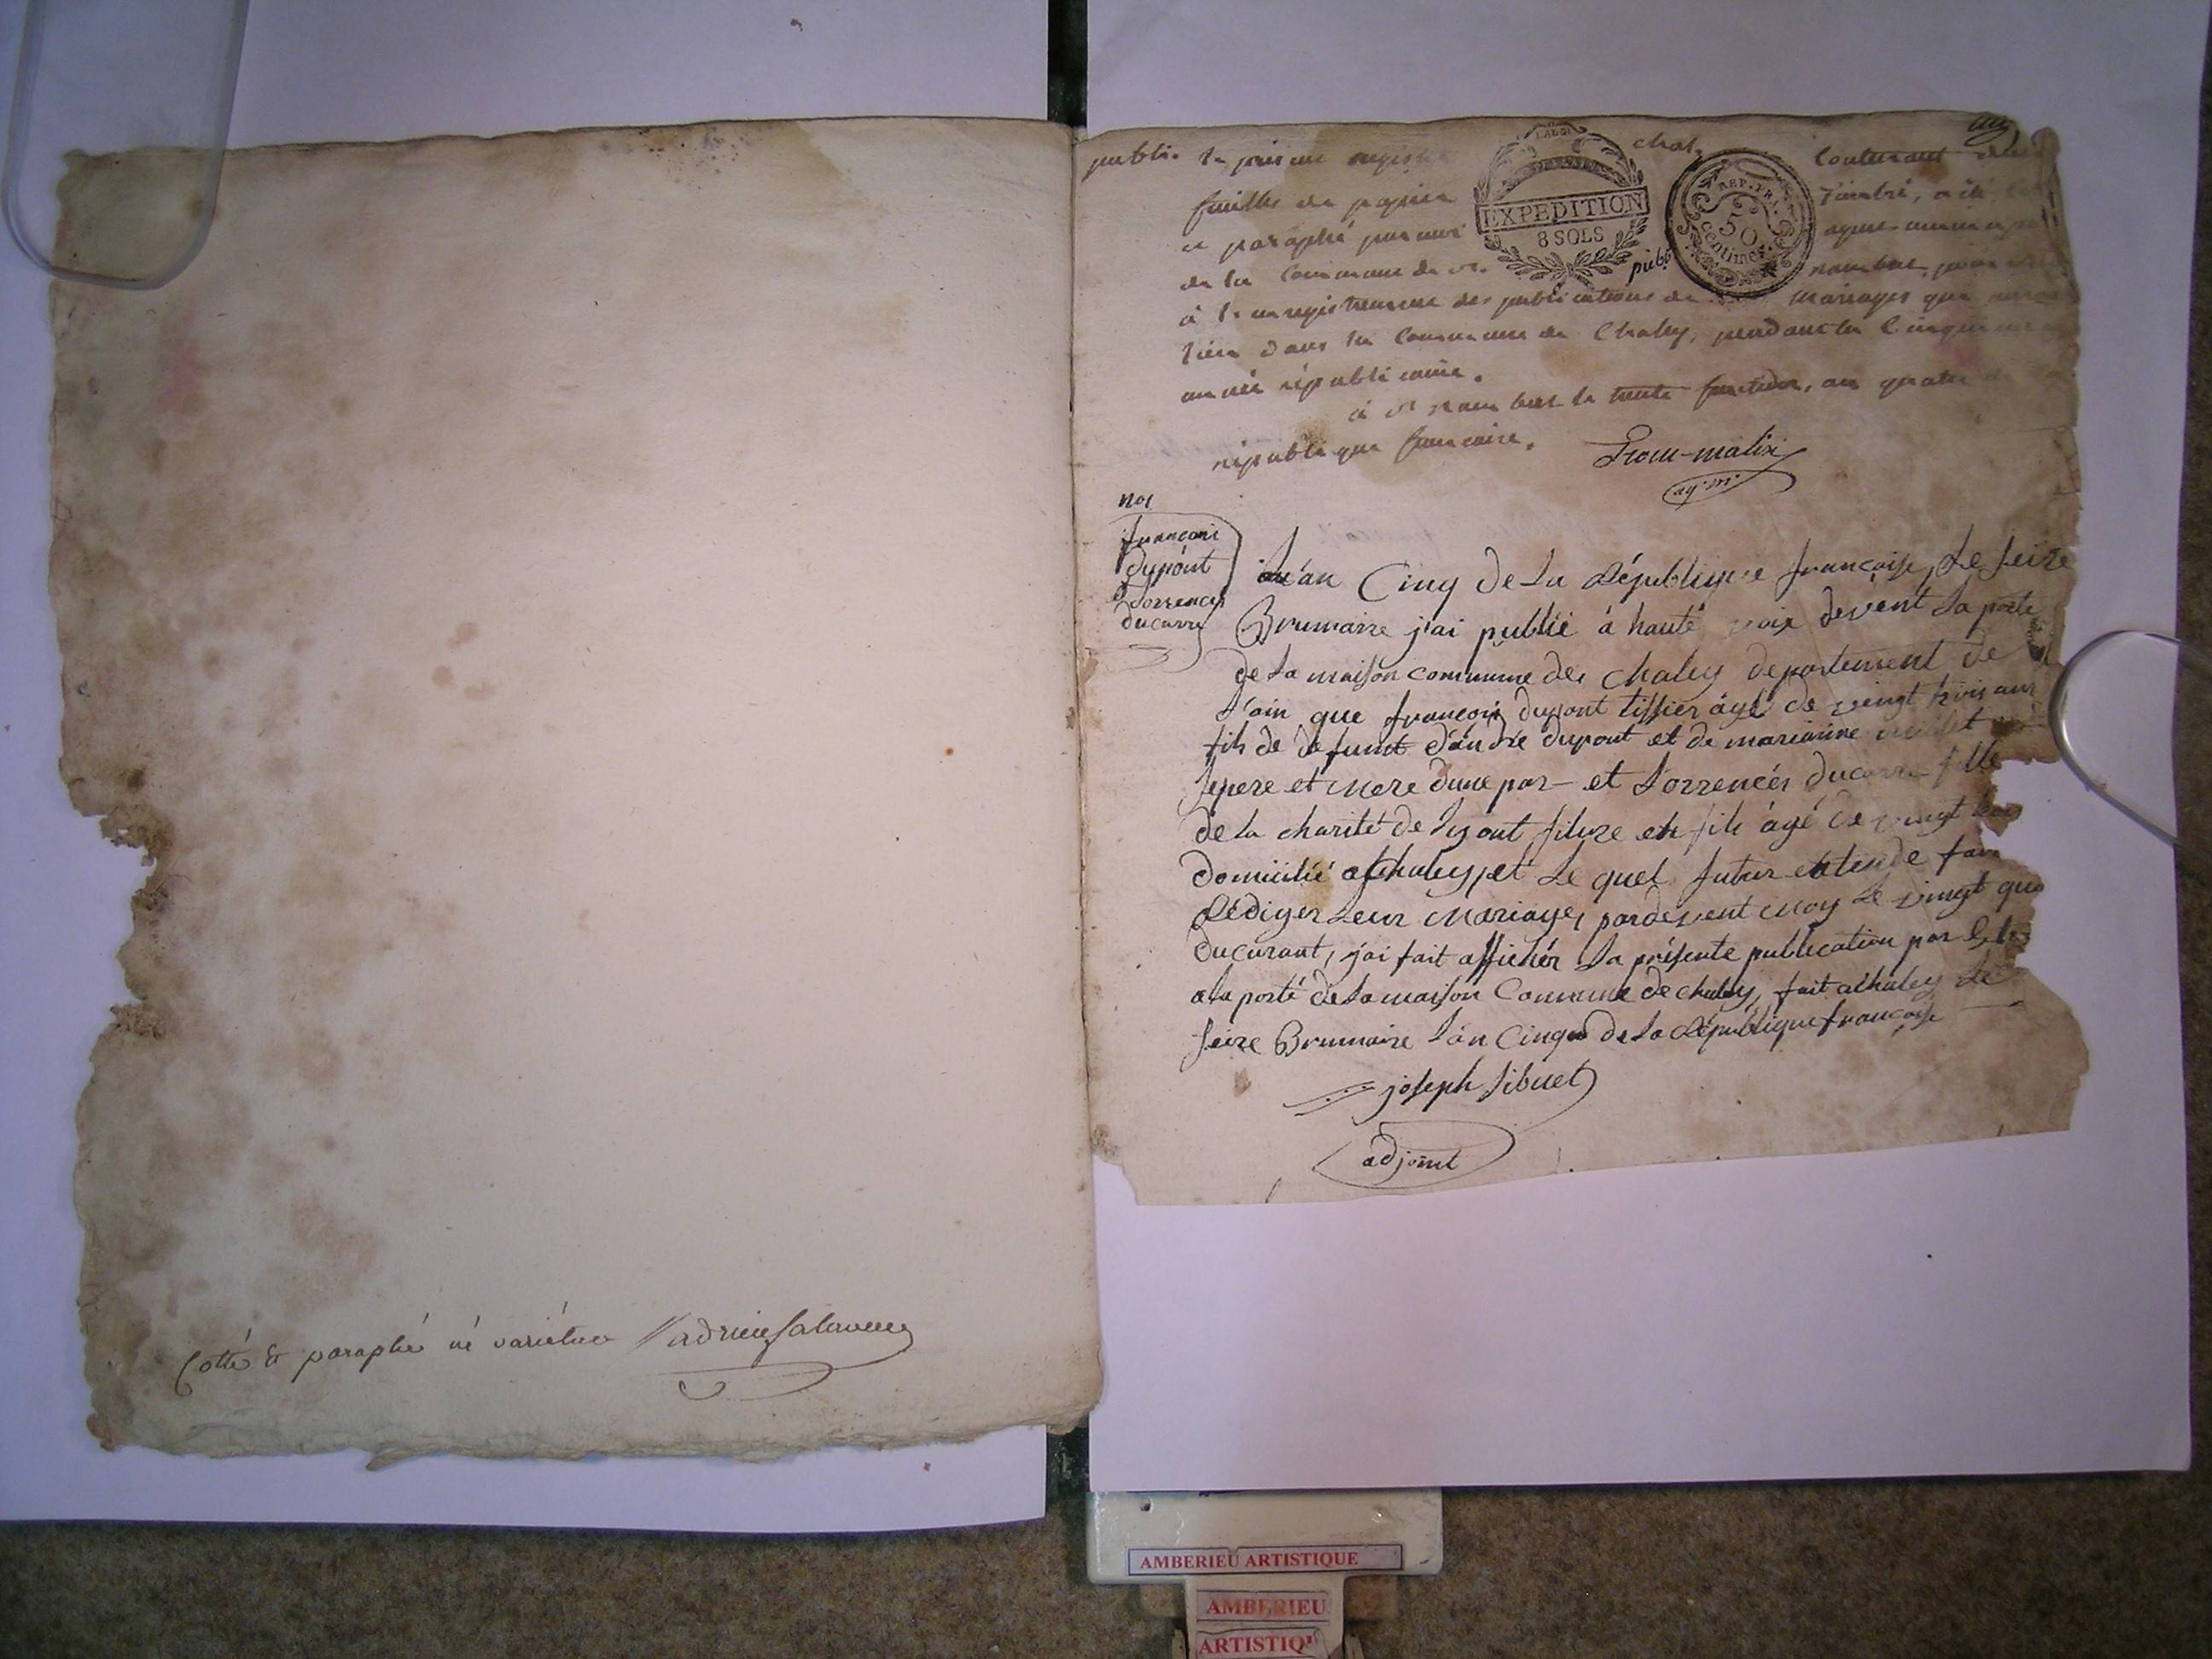 Cotté & paraphé né variétur
publi. le présent registre
chal.
contenant
feuilles de papier
timbré, a été
EXPEDITION
8 SOLS
REP. FRA.
50
centimes
et paraphé par moi
agent municipal
publ
de la commune de St.
rambert, pour
à l'enregistrement des publications de mariages qui
lieu dans la commune de Chaley, pendant la cinquieme
année républicaine.
à St rambert le trente fructidor, an quatre
république française.
ag. m.
no1
françoi
dupont
&
Lorrence
ducarre
L'an Cinq de La République françoise, Le seize
Brumaire j'ai publié á hauté voix devent La porte
de La maison commune de chaley departement de
L'ain que françois dupont tissier âgé de veingt trois ans
fils de defunt d'andre dupont et de marianne
Sepere et mere dune par et Lorrences ducarre fille
de La charité de future âgé de vingt
domicilié a chaley, et Le quel futur entende
Rédiger Leur Mariage, pardevent moy Le vingt
ducurant, j'ai fait afficher La présente publication par
ala porté de La maison Commune de chaley, fait achaley Le
seize Brumaire L'an Cinq de La République françoise
joseph Sibuet
adjoint
AMBERIEU ARTISTIQUE
AMBERIEU
ARTISTIQU